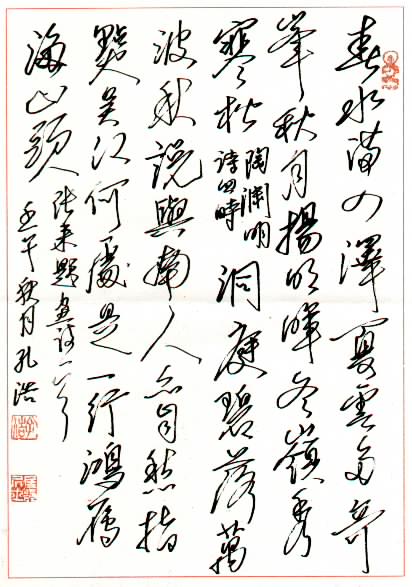 春水滿四澤夏雲多奇
峯秋月揚明暉冬嶺秀
寒松
陶淵明
詩四時
洞庭碧落萬
波秋說與南人亦自愁指
點吳江何處是一行鴻雁
海山頭
張耒題畫詩一首
壬午秋月孔浩